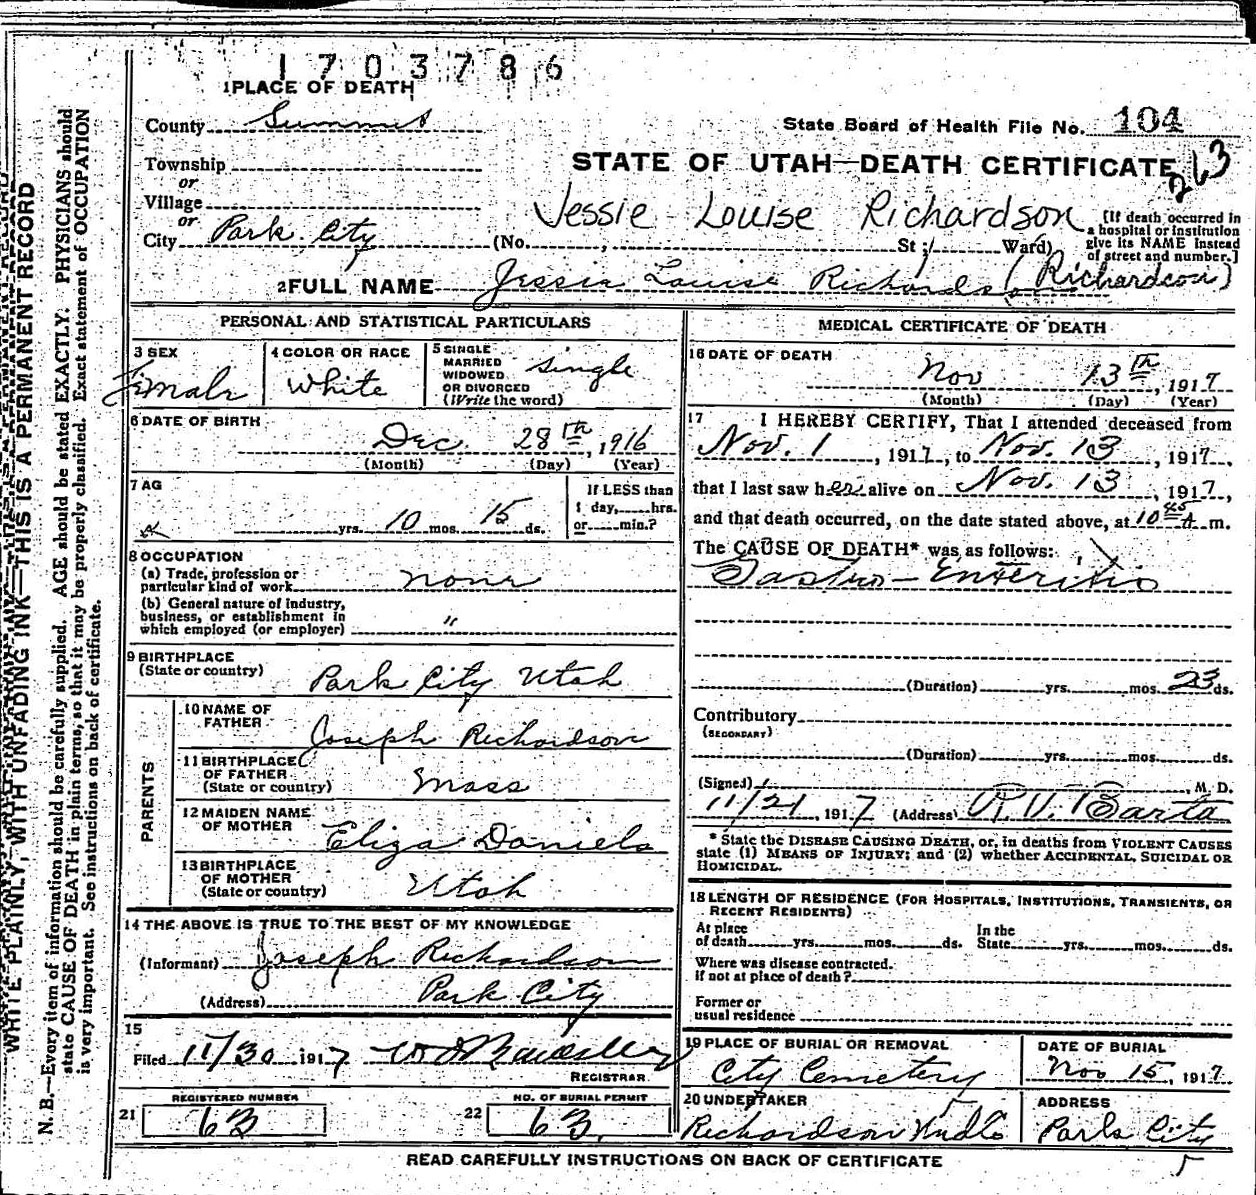 1703786
1 PLACE OF DEATH
County Summit
State Board of Health File No. 104
Township
or
Village
or
City Park City
STATE OF UTAH—DEATH CERTIFICATE
263
Jessie Louise Richardson
(No. , St ; Ward)
[If death occurred in
a hospital or institution
give its NAME instead
of street and number.]
2 FULL NAME Jessie Louise Richardson (Richardson)
PERSONAL AND STATISTICAL PARTICULARS
3 SEX
Female
4 COLOR OR RACE
White
5 SINGLE
MARRIED
WIDOWED
OR DIVORCED
(Write the word)
Single
6 DATE OF BIRTH
Dec. 28th, 1916
(Month) (Day) (Year)
7 AG
yrs. 10 mos. 15 ds.
If LESS than
1 day, hrs.
or min.?
8 OCCUPATION
(a) Trade, profession or
particular kind of work none
(b) General nature of industry,
business, or establishment in
which employed (or employer) "
9 BIRTHPLACE
(State or country)
Park City Utah
PARENTS
10 NAME OF
FATHER
Joseph Richardson
11 BIRTHPLACE
OF FATHER
(State or country)
Mass
12 MAIDEN NAME
OF MOTHER
Eliza Daniels
13 BIRTHPLACE
OF MOTHER
(State or country)
Utah
14 THE ABOVE IS TRUE TO THE BEST OF MY KNOWLEDGE
(Informant) Joseph Richardson
(Address) Park City
15
Filed 11/30 1917
REGISTRAR
REGISTERED NUMBER
21 63
NO. OF BURIAL PERMIT
22 63.
MEDICAL CERTIFICATE OF DEATH
16 DATE OF DEATH
Nov 13th, 1917
(Month) (Day) (Year)
17 I HEREBY CERTIFY, That I attended deceased from
Nov. 1, 1917, to Nov. 13, 1917,
that I last saw her alive on Nov. 13, 1917,
and that death occurred, on the date stated above, at 10 45 A m.
The CAUSE OF DEATH* was as follows:
Gastro-Enteritis
(Duration) yrs. mos. 23 ds.
Contributory
(SECONDARY)
(Duration) yrs. mos. ds.
(Signed) , M. D.
11/21, 1917 (Address) R.V. Barta
* State the DISEASE CAUSING DEATH, or, in deaths from VIOLENT CAUSES
state (1) MEANS OF INJURY; and (2) whether ACCIDENTAL, SUICIDAL OR
HOMICIDAL.
18 LENGTH OF RESIDENCE (FOR HOSPITALS, INSTITUTIONS, TRANSIENTS, OR
RECENT RESIDENTS)
At place
of death yrs. mos. ds.
In the
State yrs. mos. ds.
Where was disease contracted.
if not at place of death?
Former or
usual residence
19 PLACE OF BURIAL OR REMOVAL
City Cemetery
DATE OF BURIAL
Nov 15, 1917
20 UNDERTAKER
Richardson
ADDRESS
Park City
READ CAREFULLY INSTRUCTIONS ON BACK OF CERTIFICATE
WRITE PLAINLY, WITH UNFADING INK—THIS IS A PERMANENT RECORD
N. B.—Every item of information should be carefully supplied. AGE should be stated EXACTLY. PHYSICIANS should
state CAUSE OF DEATH in plain terms, so that it may be properly classified. Exact statement of OCCUPATION
is very important. See instructions on back of certificate.